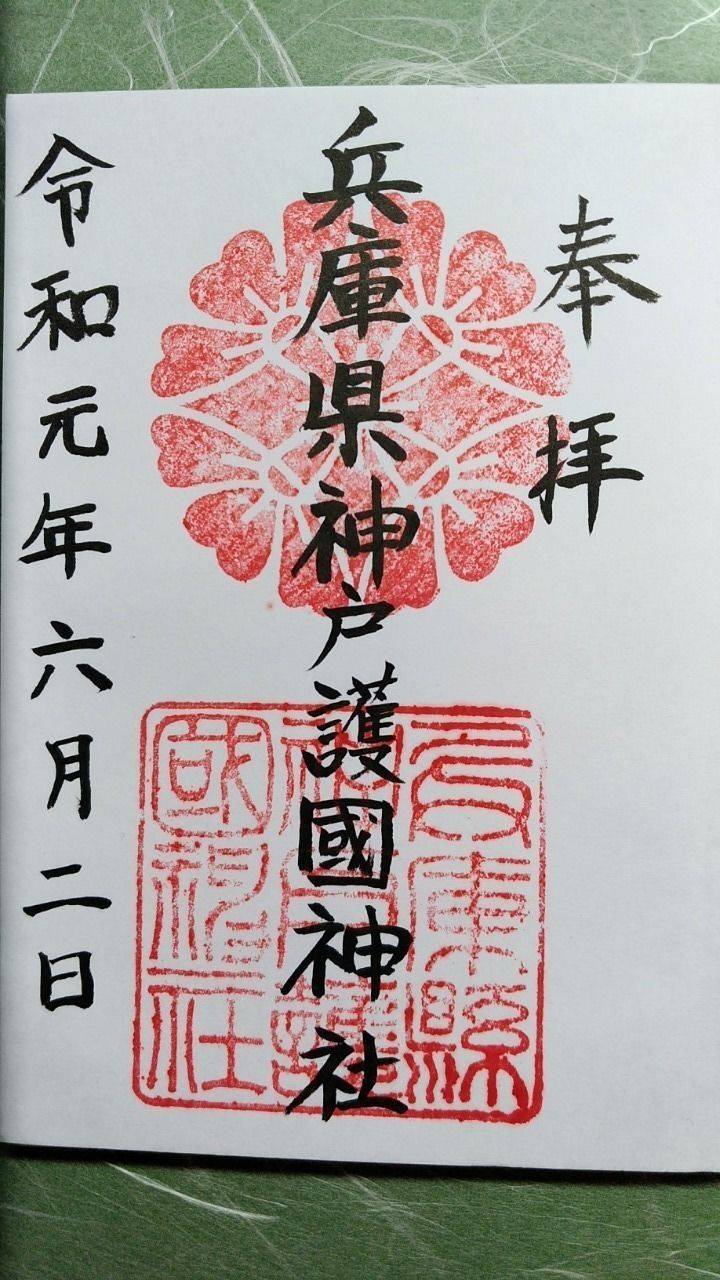 奉拝
兵庫県神戸護國神社
令和元年六月二日
兵庫縣
神戸護
國神社